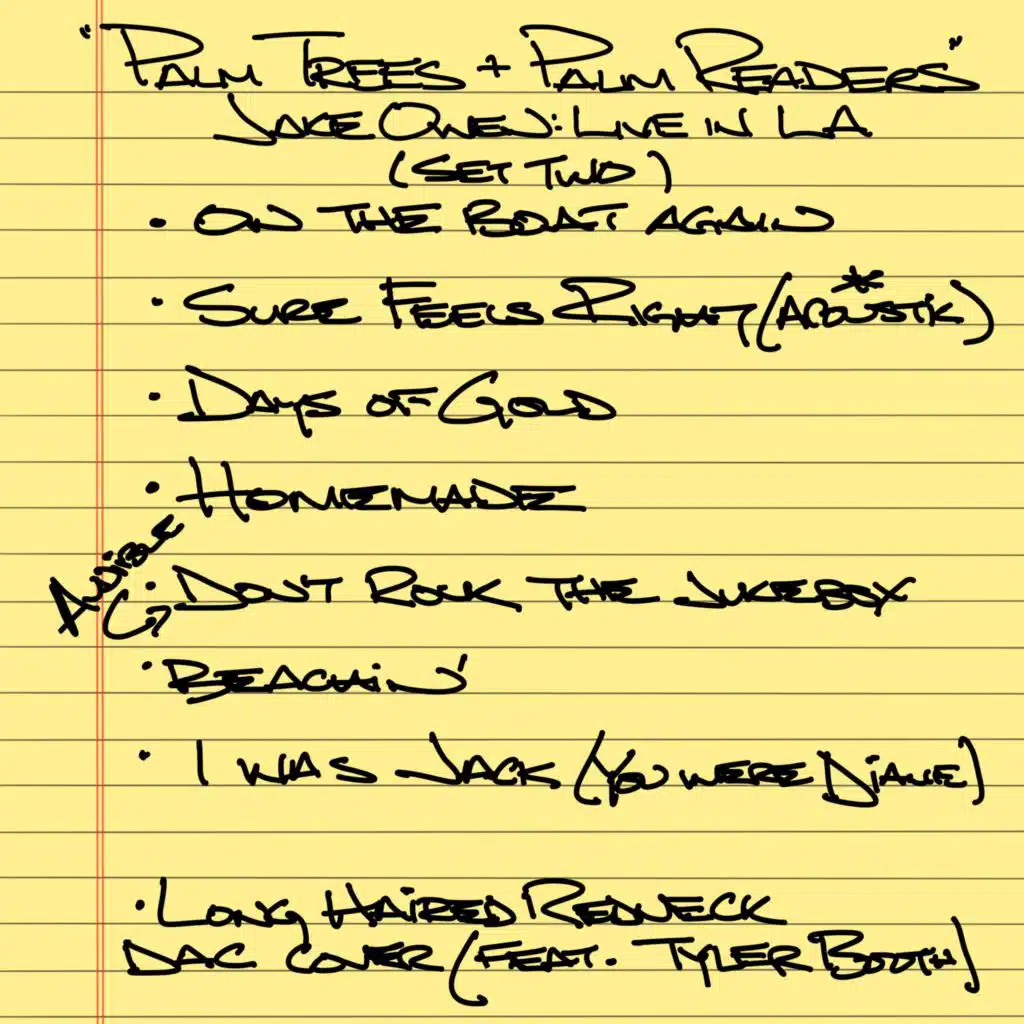 "PALM TREES + PALM READERS"
JAKE OWEN: LIVE IN LA
(SET TWO)
• ON THE BOAT AGAIN
• SURE FEELS RIGHT (ACOUSTIC*)
• DAYS OF GOLD
• HOMEMADE
AUDIBLE
• DON'T ROCK THE JUKEBOX
• BEACHIN'
• I WAS JACK (YOU WERE DIANE)
• LONG HAIRED REDNECK
DAC COVER (FEAT. TYLER BOOTH)